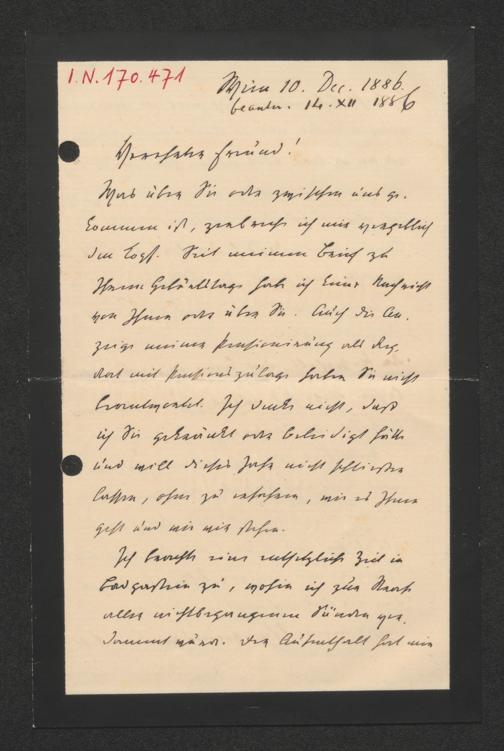 I.N.170.471
Wien 10. Dec. 1886.
beantw. 14. XII 1886
Verehrter Freund!
Was über Sie oder zwischen uns ge-
kommen ist, zerbreche ich mir vergeblich
den Kopf. Seit meinem Brief zu
Ihrem Geburtstage habe ich keine Nachricht
von Ihnen oder über Sie. Auch die An-
zeige meiner Pensionirung als Reg.
mit Pensionszulage haben Sie nicht
beantwortet. Ich denke nicht, daß
ich Sie gekränkt oder beleidigt hätte
und will dieses Jahr nicht schließen
lassen, ohne zu erfahren, wie es Ihnen
geht und wie wir stehen.
Ich brachte eine entsetzliche Zeit in
Badgastein zu, wohin ich zur Strafe
aller nichtbegangenen Sünden ver-
dammt war. Der Aufenthalt hat mir